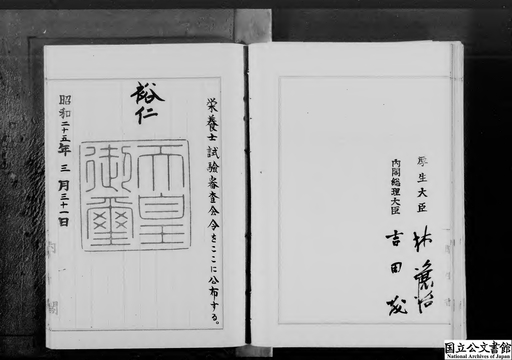 栄養士試験審査会令をここに公布する。
裕仁
天皇御璽
昭和二十五年三月三十一日
内閣
厚生大臣 林 讓治
内閣総理大臣 吉田茂
国立公文書館
National Archives of Japan